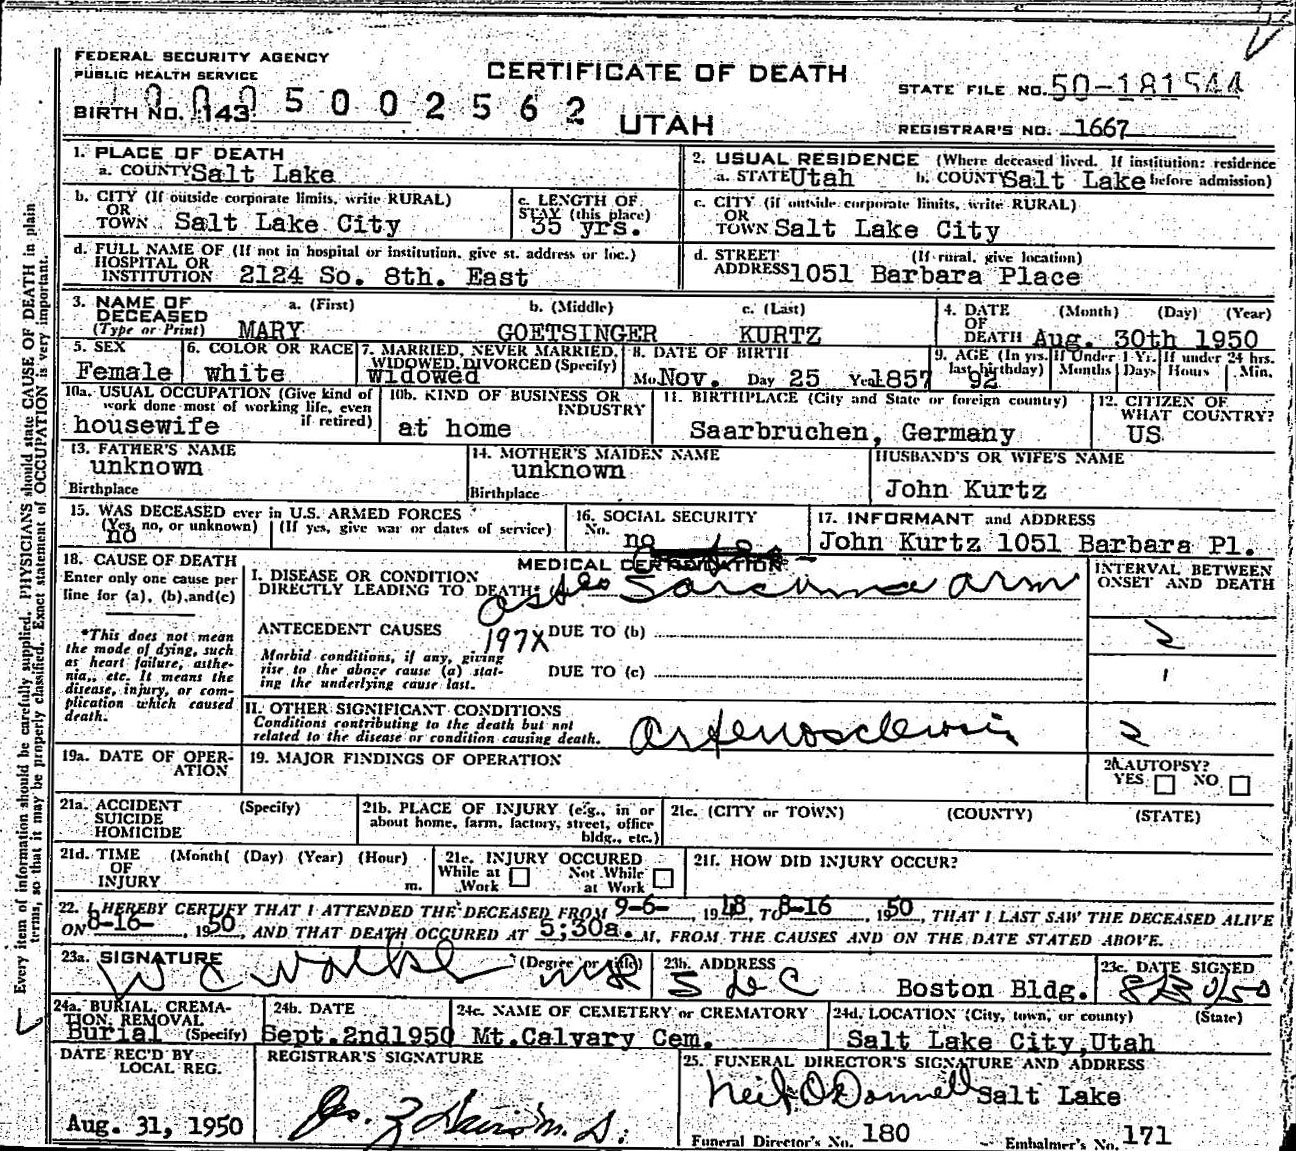 FEDERAL SECURITY AGENCY
PUBLIC HEALTH SERVICE
CERTIFICATE OF DEATH
STATE FILE NO. 50-181544
BIRTH NO. 143 0005002562
UTAH
REGISTRAR'S NO. 1667
1. PLACE OF DEATH
a. COUNTY Salt Lake
2. USUAL RESIDENCE (Where deceased lived. If institution: residence before admission)
a. STATE Utah b. COUNTY Salt Lake
b. CITY (If outside corporate limits, write RURAL)
OR
TOWN Salt Lake City
c. LENGTH OF
STAY (this place)
35 yrs.
c. CITY (if outside corporate limits, write RURAL)
OR
TOWN Salt Lake City
d. FULL NAME OF (If not in hospital or institution, give st. address or loc.)
HOSPITAL OR
INSTITUTION 2124 So. 8th. East
d. STREET (If rural, give location)
ADDRESS 1051 Barbara Place
3. NAME OF
DECEASED
(Type or Print)
a. (First) b. (Middle) c. (Last)
MARY GOETSINGER KURTZ
4. DATE (Month) (Day) (Year)
OF
DEATH Aug. 30th 1950
5. SEX
Female
6. COLOR OR RACE
white
7. MARRIED, NEVER MARRIED,
WIDOWED, DIVORCED (Specify)
widowed
8. DATE OF BIRTH
Mo. Nov. Day 25 Year 1857
9. AGE (In yrs.
last birthday)
92
If Under 1 Yr.
Months Days
If under 24 hrs.
Hours Min.
10a. USUAL OCCUPATION (Give kind of
work done most of working life, even
if retired)
housewife
10b. KIND OF BUSINESS OR
INDUSTRY
at home
11. BIRTHPLACE (City and State or foreign country)
Saarbruchen, Germany
12. CITIZEN OF
WHAT COUNTRY?
US
13. FATHER'S NAME
unknown
Birthplace
14. MOTHER'S MAIDEN NAME
unknown
Birthplace
HUSBAND'S OR WIFE'S NAME
John Kurtz
15. WAS DECEASED ever in U.S. ARMED FORCES
(Yes, no, or unknown) (If yes, give war or dates of service)
no
16. SOCIAL SECURITY
No. no
17. INFORMANT and ADDRESS
John Kurtz 1051 Barbara Pl.
18. CAUSE OF DEATH
Enter only one cause per
line for (a), (b), and (c)
*This does not mean
the mode of dying, such
as heart failure, asthe-
nia,, etc. It means the
disease, injury, or com-
plication which caused
death.
MEDICAL CERTIFICATION
I. DISEASE OR CONDITION
DIRECTLY LEADING TO DEATH* osteo Sarcoma arm
ANTECEDENT CAUSES 197X DUE TO (b)
Morbid conditions, if any, giving
rise to the above cause (a) stat-
ing the underlying cause last.
DUE TO (c)
II. OTHER SIGNIFICANT CONDITIONS
Conditions contributing to the death but not
related to the disease or condition causing death.
Arteriosclerosis
INTERVAL BETWEEN
ONSET AND DEATH
2
1
2
19a. DATE OF OPER-
ATION
19. MAJOR FINDINGS OF OPERATION
20. AUTOPSY?
YES NO
21a. ACCIDENT (Specify)
SUICIDE
HOMICIDE
21b. PLACE OF INJURY (e.g., in or
about home, farm, factory, street, office
bldg., etc.)
21c. (CITY or TOWN) (COUNTY) (STATE)
21d. TIME (Month( (Day) (Year) (Hour)
OF
INJURY m.
21e. INJURY OCCURED
While at Work Not While at Work
21f. HOW DID INJURY OCCUR?
22. I HEREBY CERTIFY THAT I ATTENDED THE DECEASED FROM 9-6-, 1948, TO 8-16, 1950, THAT I LAST SAW THE DECEASED ALIVE
ON 8-16-, 1950, AND THAT DEATH OCCURED AT 5;30a. M, FROM THE CAUSES AND ON THE DATE STATED ABOVE.
23a. SIGNATURE (Degree or title)
W C Walker
23b. ADDRESS
S L C Boston Bldg.
23c. DATE SIGNED
8/30/50
24a. BURIAL, CREMA-
TION, REMOVAL
Burial (Specify)
24b. DATE
Sept. 2nd1950
24c. NAME OF CEMETERY or CREMATORY
Mt.Calvary Cem.
24d. LOCATION (City, town, or county) (State)
Salt Lake City,Utah
DATE REC'D BY
LOCAL REG.
Aug. 31, 1950
REGISTRAR'S SIGNATURE
25. FUNERAL DIRECTOR'S SIGNATURE AND ADDRESS
Neil O'Donnell Salt Lake
Funeral Director's No. 180 Embalmer's No. 171
Every item of information should be carefully supplied. PHYSICIANS should state CAUSE OF DEATH in plain
terms, so that it may be properly classified. Exact statement of OCCUPATION is very important.